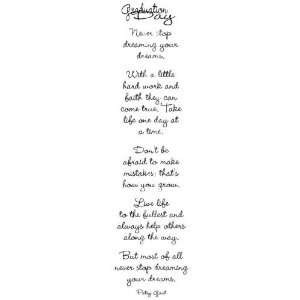 Graduation
Day
Never stop
dreaming your
dreams.
With a little
hard work and
faith they can
come true. Take
life one day at
a time.
Don't be
afraid to make
mistakes; that's
how you grow.
Live life
to the fullest and
always help others
along the way.
But most of all
never stop dreaming
your dreams.